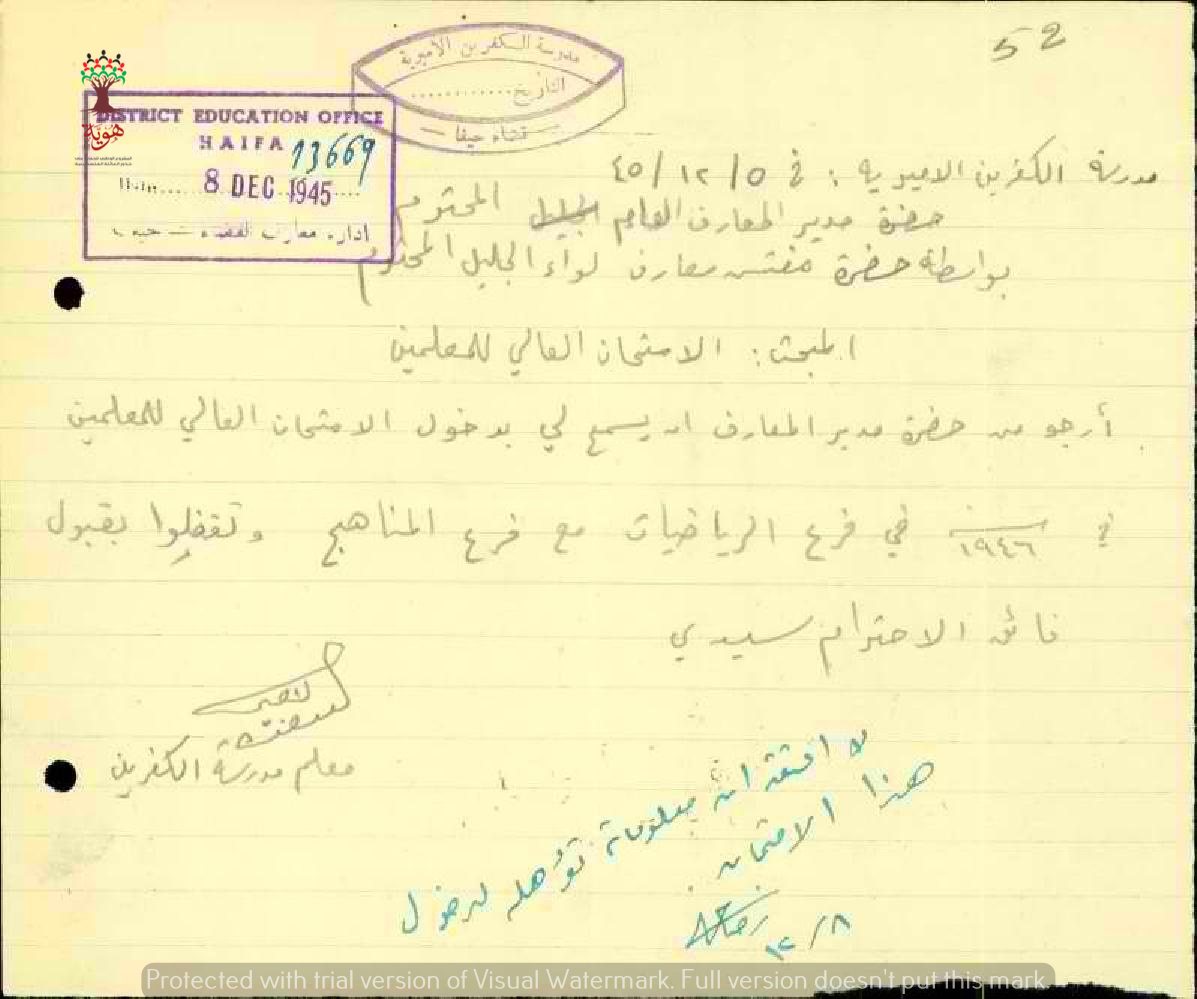 52
مدرسة الكفرين الاميرية
التاريخ............
قضاء حيفا
هوية
DISTRICT EDUCATION OFFICE
HAIFA
13669
8 DEC 1945
ادارة معارف القضاء — حيفا
مدرسة الكفرين الاميرية : في ٤٥/١٢/٥
حضرة مدير المعارف العام الجليل المحترم
بواسطة حضرة مفتش معارف لواء الجليل المحترم
المبحث : الامتحان العالي للمعلمين
أرجو من حضرة مدير المعارف ان يسمح لي بدخول الامتحان العالي للمعلمين
في سنة ١٩٤٦ في فرع الرياضيات مع فرع المناهج وتفضلوا بقبول
فائق الاحترام سيدي
معلم مدرسة الكفرين
لا اعتقد ان معلوماته تؤهله لدخول
هذا الامتحان
١٢/٨
Protected with trial version of Visual Watermark. Full version doesn't put this mark.